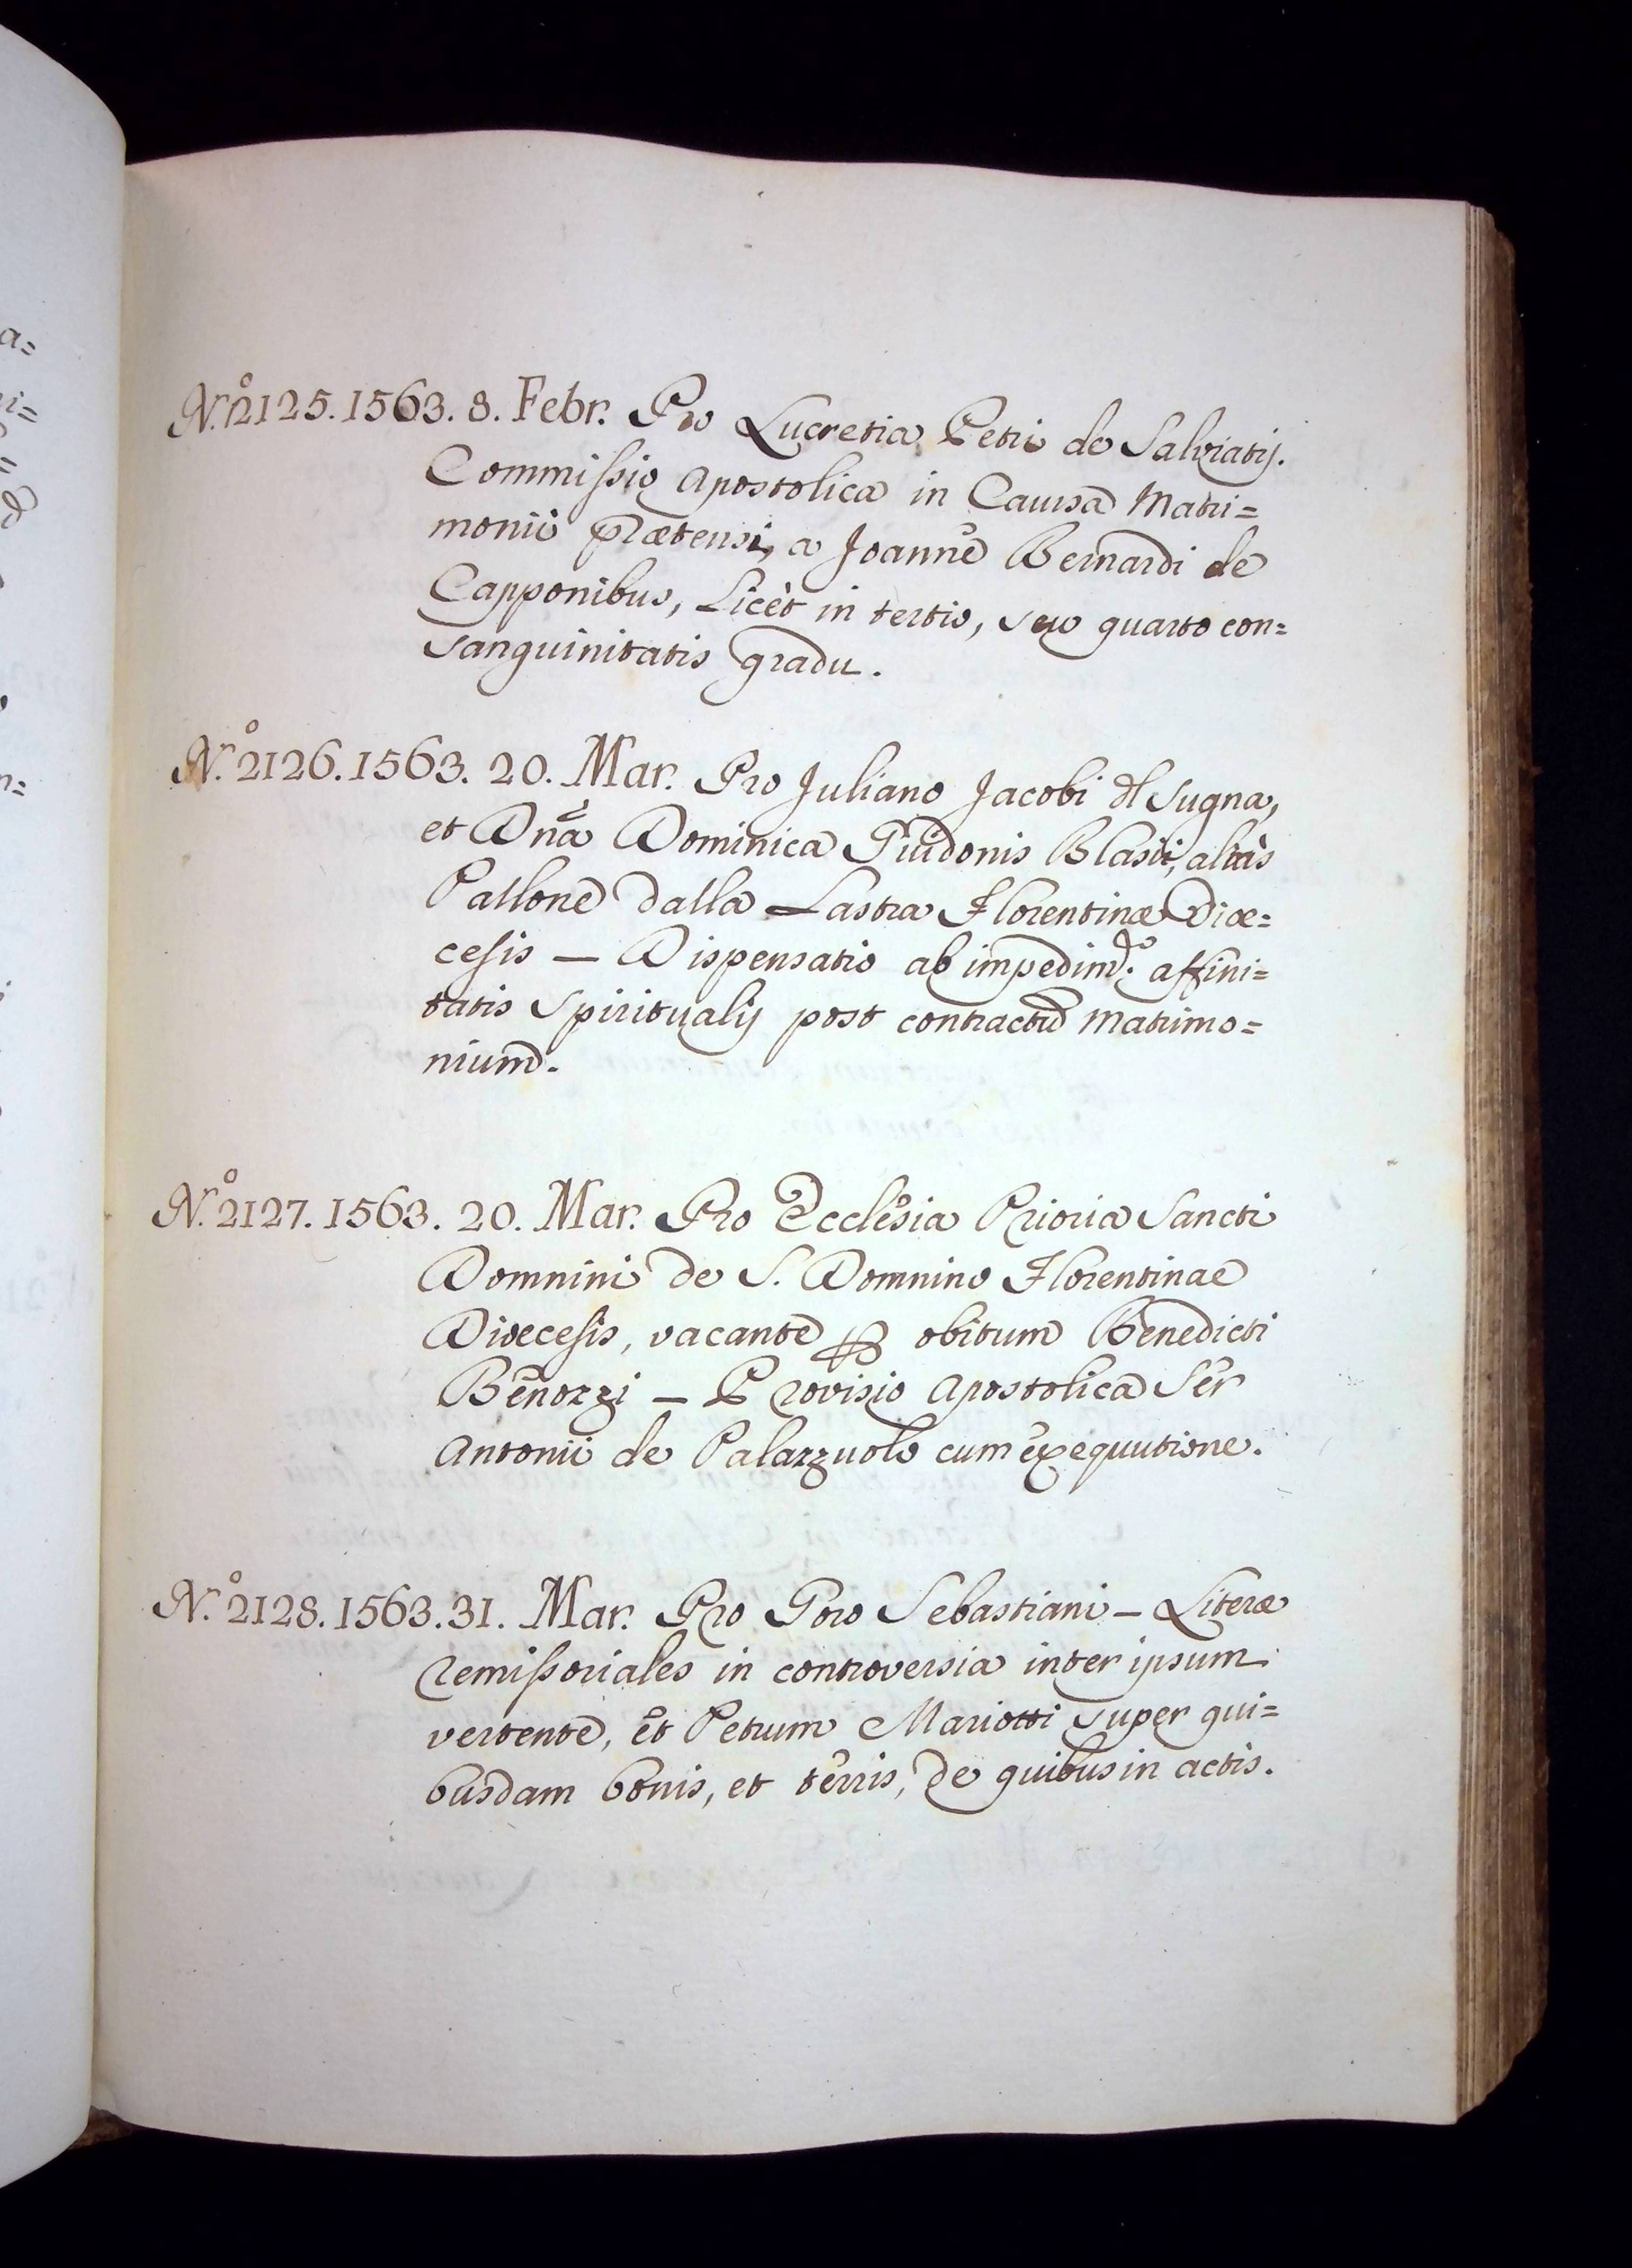 N.º 2125. 1563. 8. Febr. Pro Lucretia Petri de Salviatij.
Commissio Apostolica in Causa Matri=
monii prætensi, a Joanne Bernardi de
Capponibus, Licèt in tertio, seu quarto con=
sanguinitatis gradu.
N.º 2126. 1563. 20. Mar. Pro Juliano Jacobi del Sugna,
et Dña Dominica Guidonis Blasii, aliàs
Pallone dalla Lastra Florentinæ Diœ=
cesis — Dispensatio ab impedim.to affini=
tatis Spiritualij post contractũ Matrimo=
nium.
N.º 2127. 1563. 20. Mar. Pro Ecclesia Prioria Sancti
Domnini de S. Domnino Florentinae
Dioecesis, vacante per obitum Benedicti
Benozzi — Provisio Apostolica Ser
Antonii de Palazzuolo cum exequutione.
N.º 2128. 1563. 31. Mar. Pro Goro Sebastiani — Literæ
remissoriales in controversia inter ipsum
vertente, et Petrum Mariotti super qui=
busdam bonis, et terris, de quibus in actis.
a=
i=
=
n=